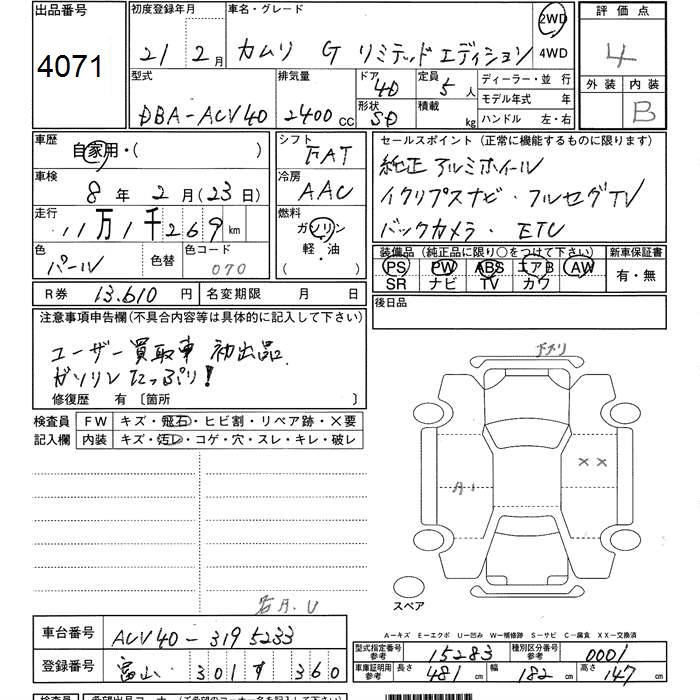 出品番号 初度登録年月 車名・グレード 評価点
4071 21 2月 カムリ G リミテッドエディション 2WD 4WD 4
型式 排気量 ドア 4D 定員 5人 ディーラー・並 行 外装 内装
DBA-ACV40 2400cc 形状 SD 積載 kg モデル年式 年 B
ハンドル 左・右
車歴 自家用・( ) シフト FAT セールスポイント(正常に機能するものに限ります)
車検 8年 2月(23日) 冷房 AAC 純正アルミホイール
イクリプスナビ・フルセグTV
走行 11万1千269km 燃料 ガソリン 軽・油 ( ) バックカメラ・ETC
色 パール 色替 色コード 070 装備品(純正品に限り○をつけて下さい) 新車保証書
PS PW ABS エアB AW 有・無
SR ナビ TV カワ
R券 13,610円 名変期限 月 日 後日品
注意事項申告欄(不具合内容等は具体的に記入して下さい)
ユーザー買取車 初出品
ガソリンたっぷり!
修復歴 有〔箇所 〕
検査員 FW キズ・飛石・ヒビ割・リペア跡・×要
記入欄 内装 キズ・汚レ・コゲ・穴・スレ・キレ・破レ
××
スペア
A-キズ E-エクボ U-凹み W-補修跡 S-サビ C-腐食 XX-交換済
車台番号 ACV40-3195233
登録番号 富山 301 す 360
型式指定番号 参考 15283 種別区分番号 参考 0001
車庫証明用 参考 長さ 481cm 幅 182cm 高さ 147cm